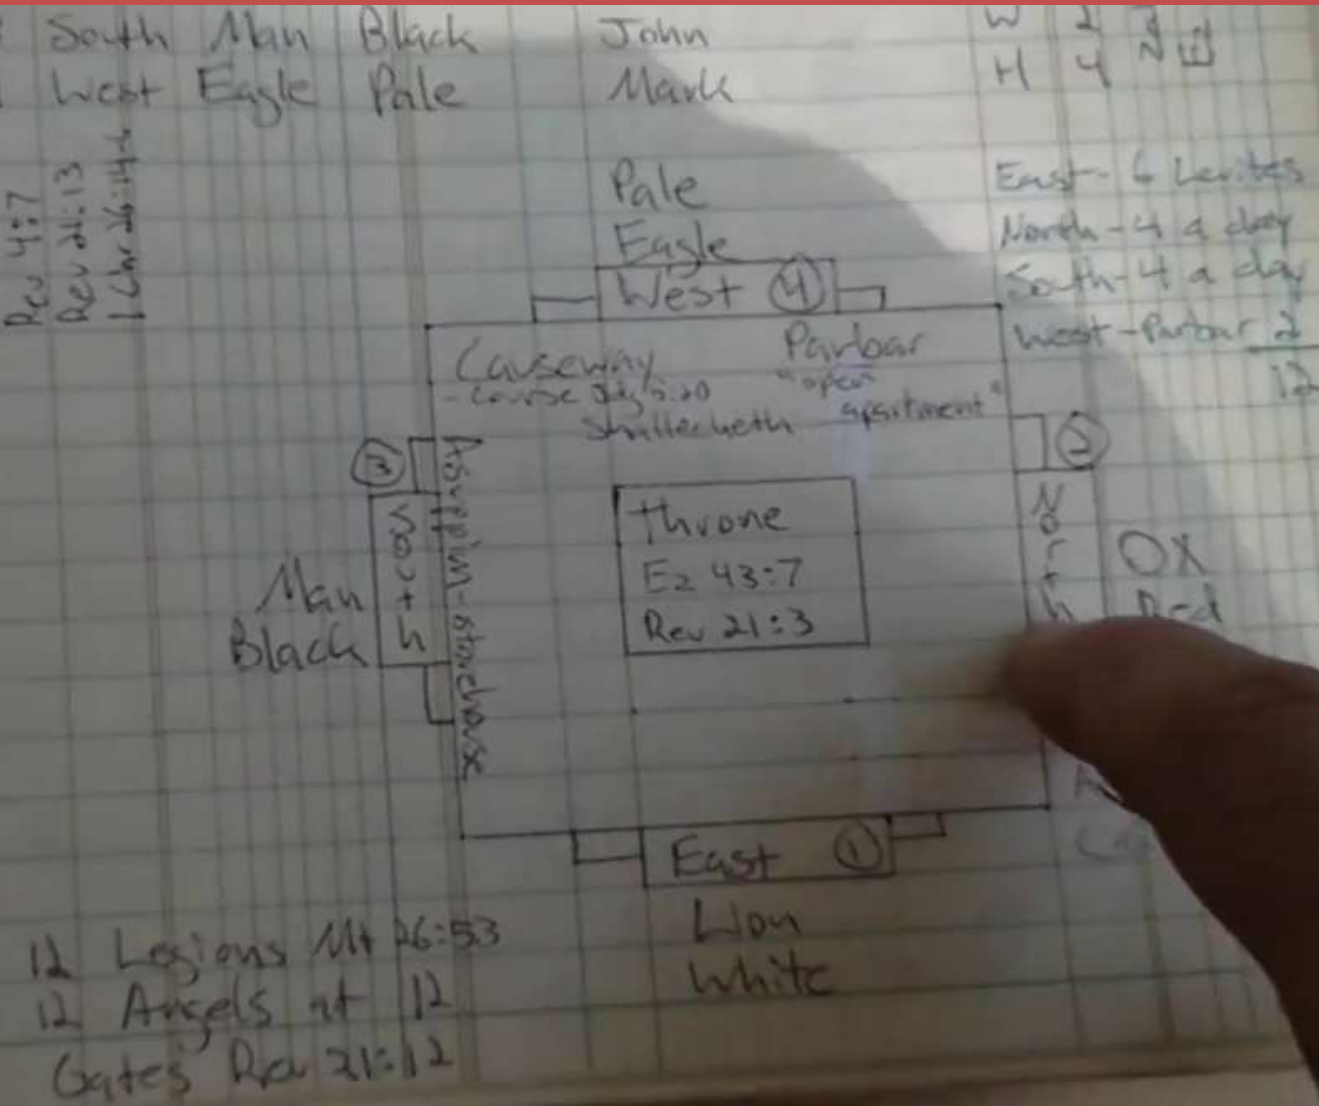 South Man Black John
West Eagle Pale Mark
W 2
H 4
Rev 4:7
Rev 21:13
1 Chr 26:14-
East - 6 Levites
North - 4 a day
South - 4 a day
West - Parbar 2
12
Pale
Eagle
West 4
Causeway
Parbar
"open
apartment"
- course Jdg 5:20
Shallecheth
3
South
Asuppim-storehouse
Man
Black
throne
Ez 43:7
Rev 21:3
2
North
OX
Red
East 1
Lion
White
12 Legions Mt 26:53
12 Angels at 12
Gates Rev 21:12